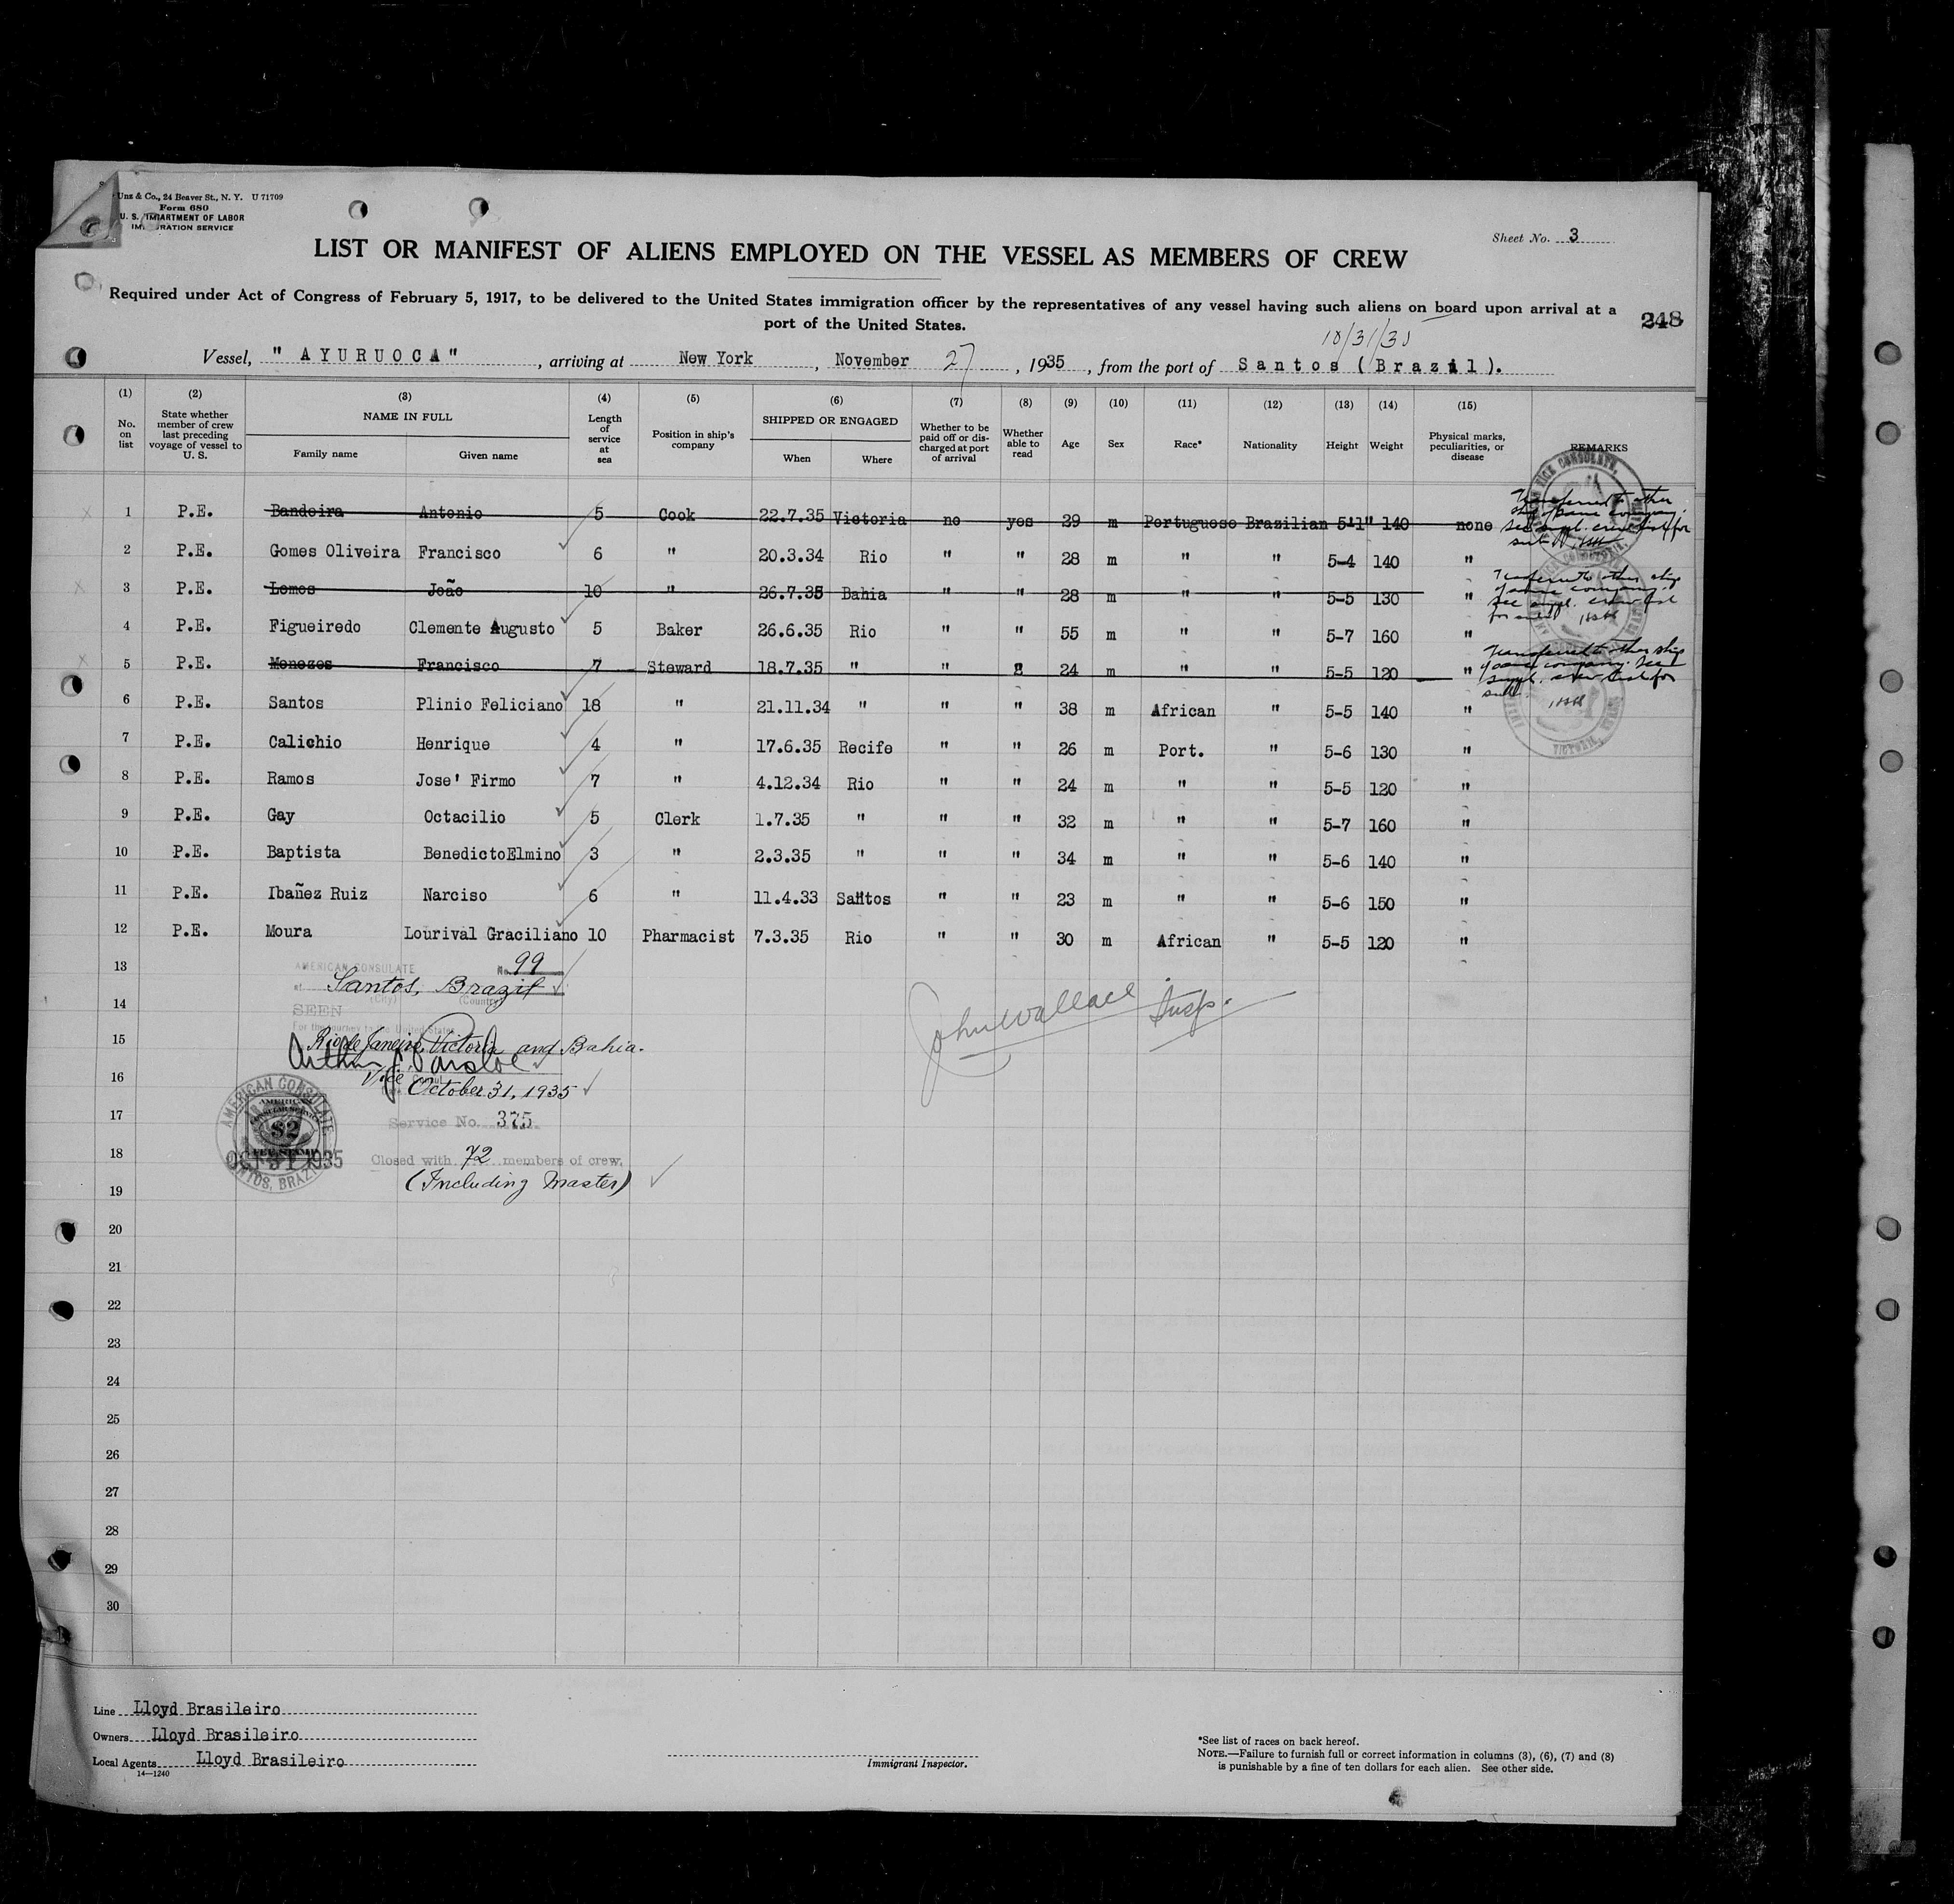 Unz & Co., 24 Beaver St., N. Y. U 71709
Form 680
U. S. DEPARTMENT OF LABOR
IMMIGRATION SERVICE
Sheet No. 3
LIST OR MANIFEST OF ALIENS EMPLOYED ON THE VESSEL AS MEMBERS OF CREW
Required under Act of Congress of February 5, 1917, to be delivered to the United States immigration officer by the representatives of any vessel having such aliens on board upon arrival at a
port of the United States.
248
10/31/35
Vessel, "AYURUOCA", arriving at New York, November 27, 1935, from the port of Santos (Brazil).
(1) No. on list (2) State whether member of crew last preceding voyage of vessel to U. S. (3) NAME IN FULL Family name Given name (4) Length of service at sea (5) Position in ship's company (6) SHIPPED OR ENGAGED When Where (7) Whether to be paid off or discharged at port of arrival (8) Whether able to read (9) Age (10) Sex (11) Race* (12) Nationality (13) Height (14) Weight (15) Physical marks, peculiarities, or disease REMARKS
1 P.E. Bandeira Antonio 5 Cook 22.7.35 Victoria no yes 29 m Portuguese Brazilian 5'1" 140 none Transferred to other ship of same company. See suppl. crew list for
2 P.E. Gomes Oliveira Francisco 6 " 20.3.34 Rio " " 28 m " " 5-4 140 "
3 P.E. Lemos João 10 " 26.7.35 Bahia " " 28 m " " 5-5 130 " Transferred to other ship of same company. See suppl. crew list for
4 P.E. Figueiredo Clemente Augusto 5 Baker 26.6.35 Rio " " 55 m " " 5-7 160 "
5 P.E. Menezes Francisco 7 Steward 18.7.35 " " " 24 m " " 5-5 120 " Transferred to other ship of same company. See suppl. crew list for
6 P.E. Santos Plinio Feliciano 18 " 21.11.34 " " " 38 m African " 5-5 140 "
7 P.E. Calichio Henrique 4 " 17.6.35 Recife " " 26 m Port. " 5-6 130 "
8 P.E. Ramos Jose' Firmo 7 " 4.12.34 Rio " " 24 m " " 5-5 120 "
9 P.E. Gay Octacilio 5 Clerk 1.7.35 " " " 32 m " " 5-7 160 "
10 P.E. Baptista BenedictoElmino 3 " 2.3.35 " " " 34 m " " 5-6 140 "
11 P.E. Ibañez Ruiz Narciso 6 " 11.4.33 Santos " " 23 m " " 5-6 150 "
12 P.E. Moura Lourival Graciliano 10 Pharmacist 7.3.35 Rio " " 30 m African " 5-5 120 "
13 AMERICAN CONSULATE No. 99
at Santos, Brazil
(City) (Country)
14 SEEN
For the journey to the United States
15 Rio de Janeiro, Victoria and Bahia.
John Wallace Insp.
16 Vice Consul
October 31, 1935
17 Service No. 375
AMERICAN CONSULATE
SANTOS, BRAZIL
AMERICAN
$2
FEE STAMP
OCT 31 1935
18 Closed with 72 members of crew.
19 (Including Master)
20
21
22
23
24
25
26
27
28
29
30
Line Lloyd Brasileiro
Owners Lloyd Brasileiro
Local Agents Lloyd Brasileiro
14—1240
Immigrant Inspector.
*See list of races on back hereof.
NOTE.—Failure to furnish full or correct information in columns (3), (6), (7) and (8)
is punishable by a fine of ten dollars for each alien. See other side.